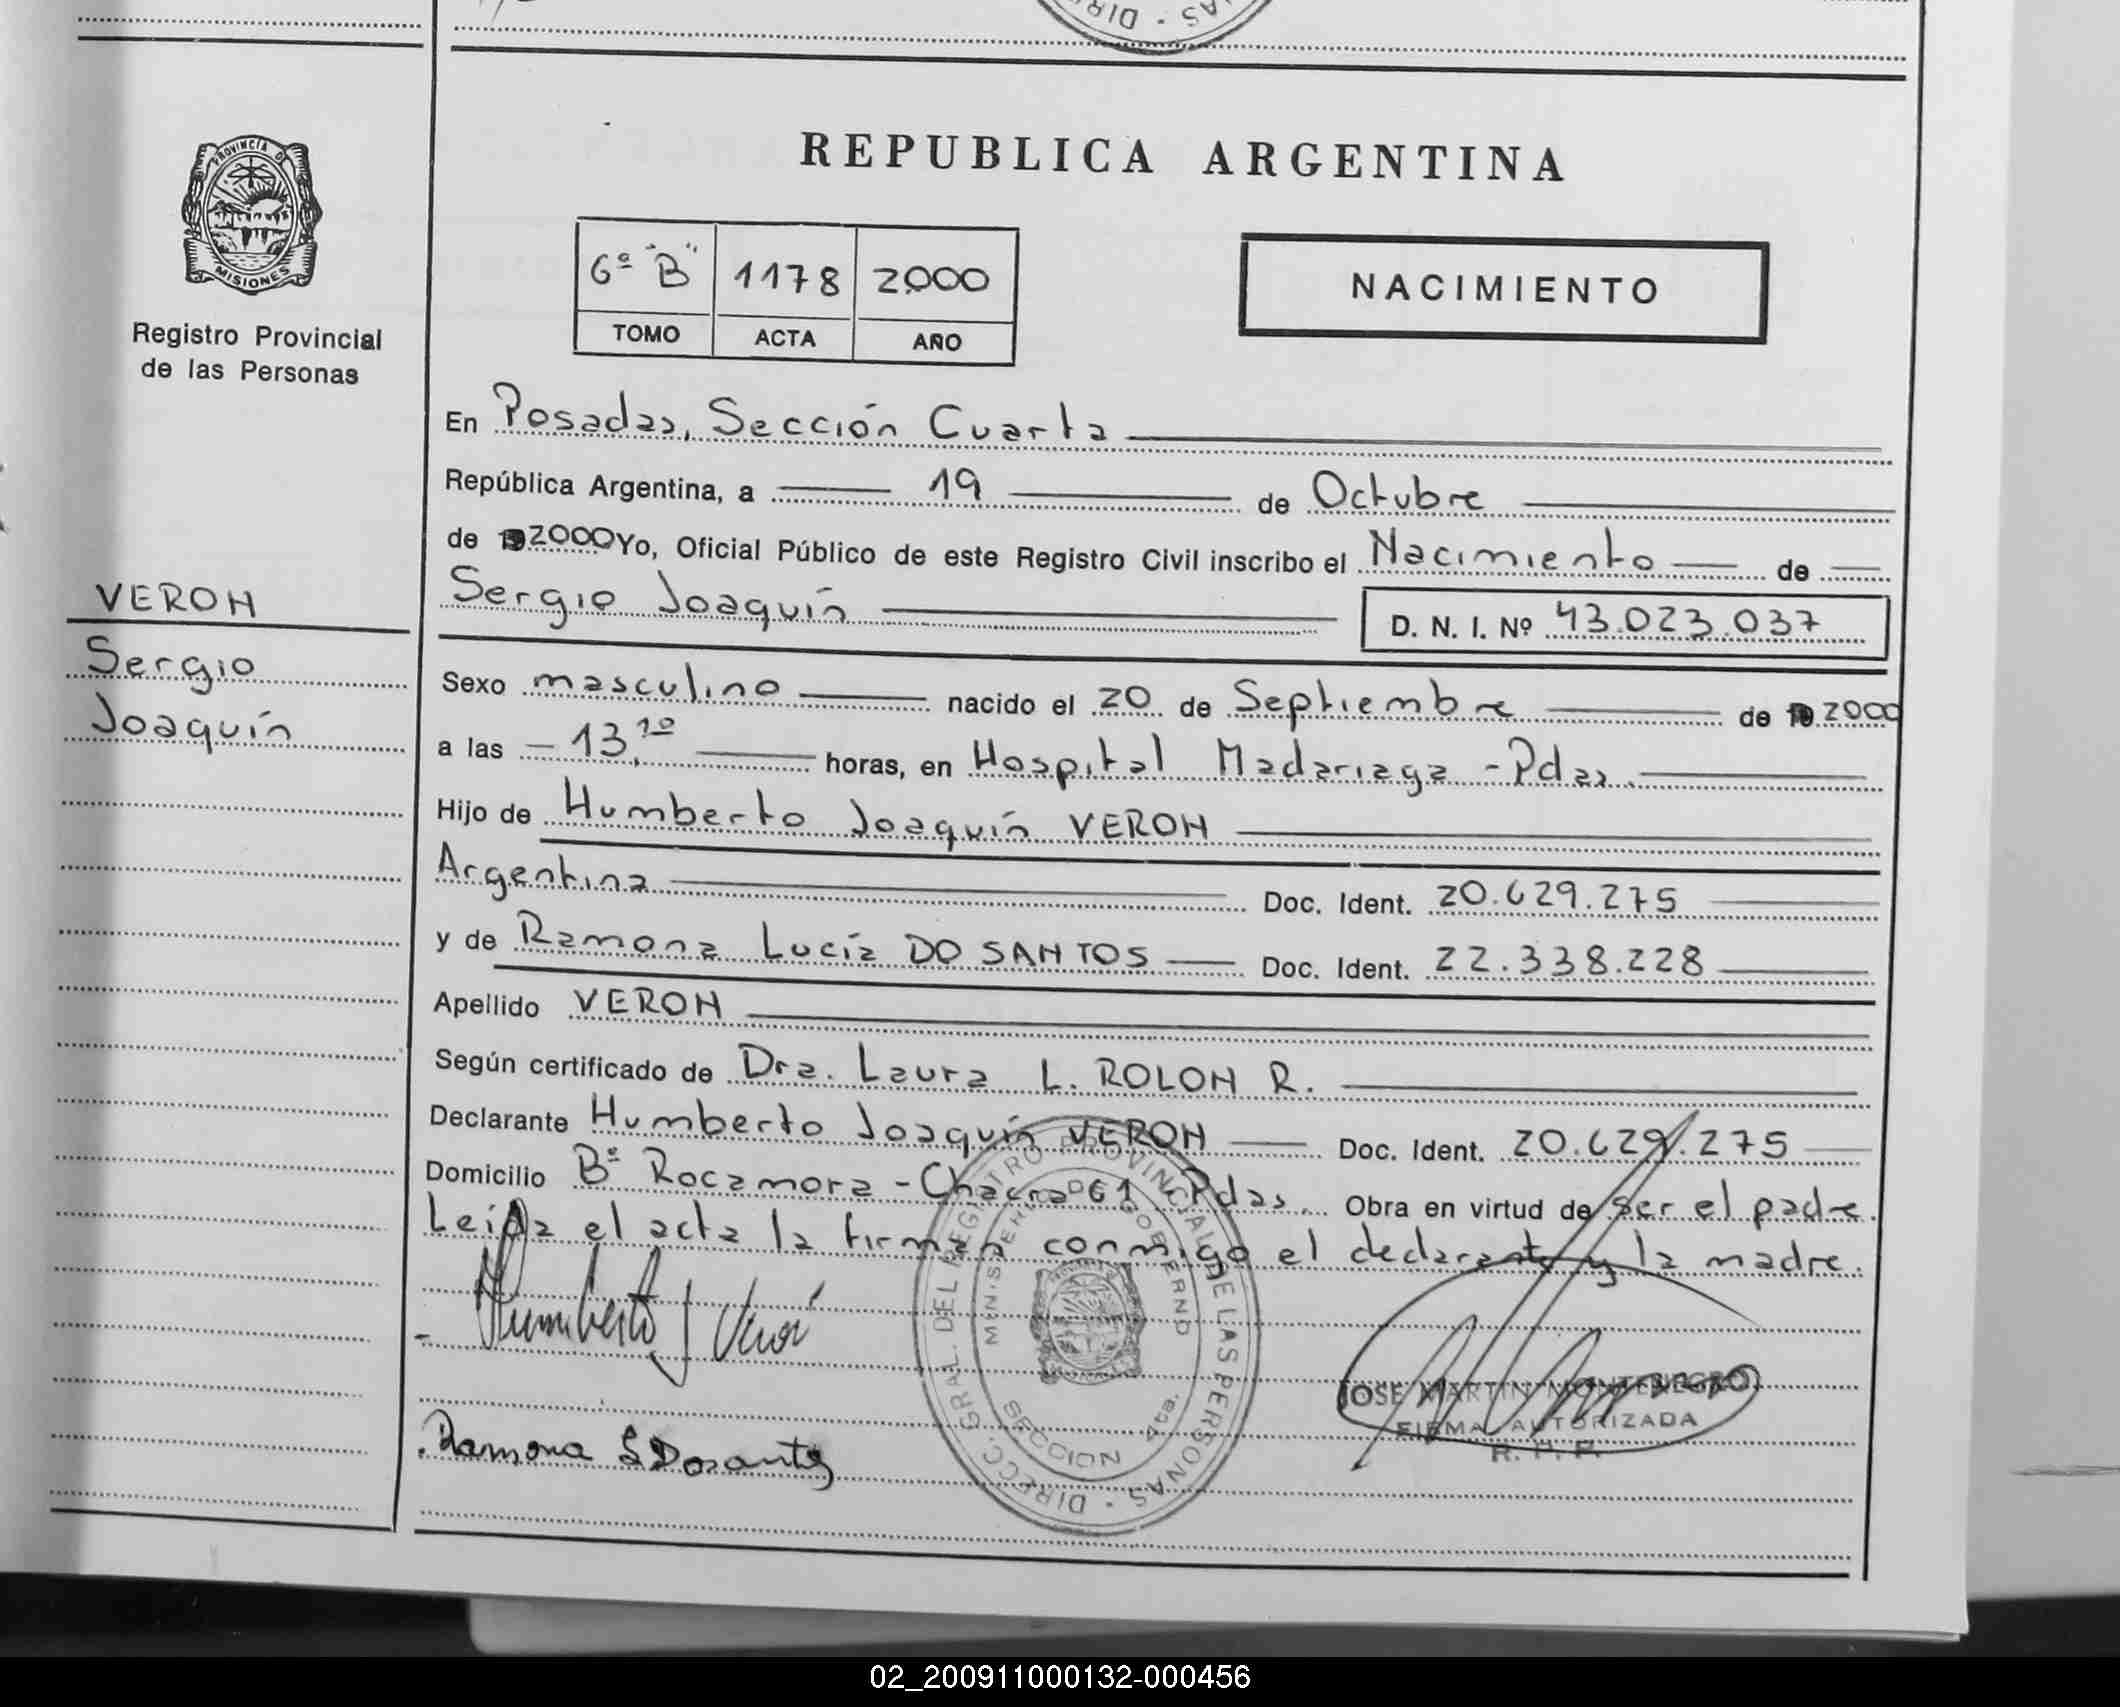 PROVINCIA D
MISIONES
Registro Provincial
de las Personas
VERON
Sergio
Joaquín
REPUBLICA ARGENTINA
6º "B" 1178 2000
TOMO ACTA AÑO
NACIMIENTO
En Posadas, Sección Cuarta
República Argentina, a 19 de Octubre
de 2000 Yo, Oficial Público de este Registro Civil inscribo el Nacimiento de
Sergio Joaquín D. N. I. Nº 43.023.037
Sexo masculino nacido el 20 de Septiembre de 2000
a las 13,10 horas, en Hospital Madariaga - Pdas.
Hijo de Humberto Joaquín VERON
Argentina Doc. Ident. 20.629.275
y de Ramona Lucía DO SANTOS Doc. Ident. 22.338.228
Apellido VERON
Según certificado de Dra. Laura L. ROLON R.
Declarante Humberto Joaquín VERON Doc. Ident. 20.629.275
Domicilio Bº Rocamora - Chacra 61 - Pdas. Obra en virtud de ser el padre.
Leída el acta la firman conmigo el declarante y la madre.
Humberto J Veron
DIRECC. GRAL. DEL REGISTRO PROVINCIAL DE LAS PERSONAS
MINISTERIO DE GOBIERNO
SECCION 4ta.
JOSE MARTIN MONTENEGRO
FIRMA AUTORIZADA
R. P. P.
Ramona L Dosantos
02_200911000132-000456